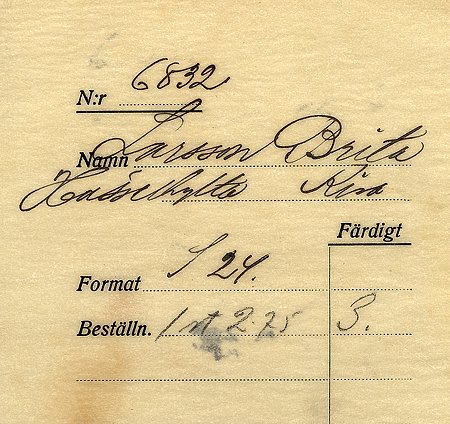 N:r 6832
Namn Larsson Brita
Hässelhytta Kisa
Färdigt
Format S 24.
Beställn. 1 st 2.75 3.